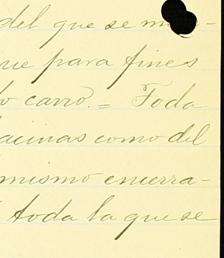 del que se
que para fines
carro. = Toda
como del
mismo encerra-
toda la que se